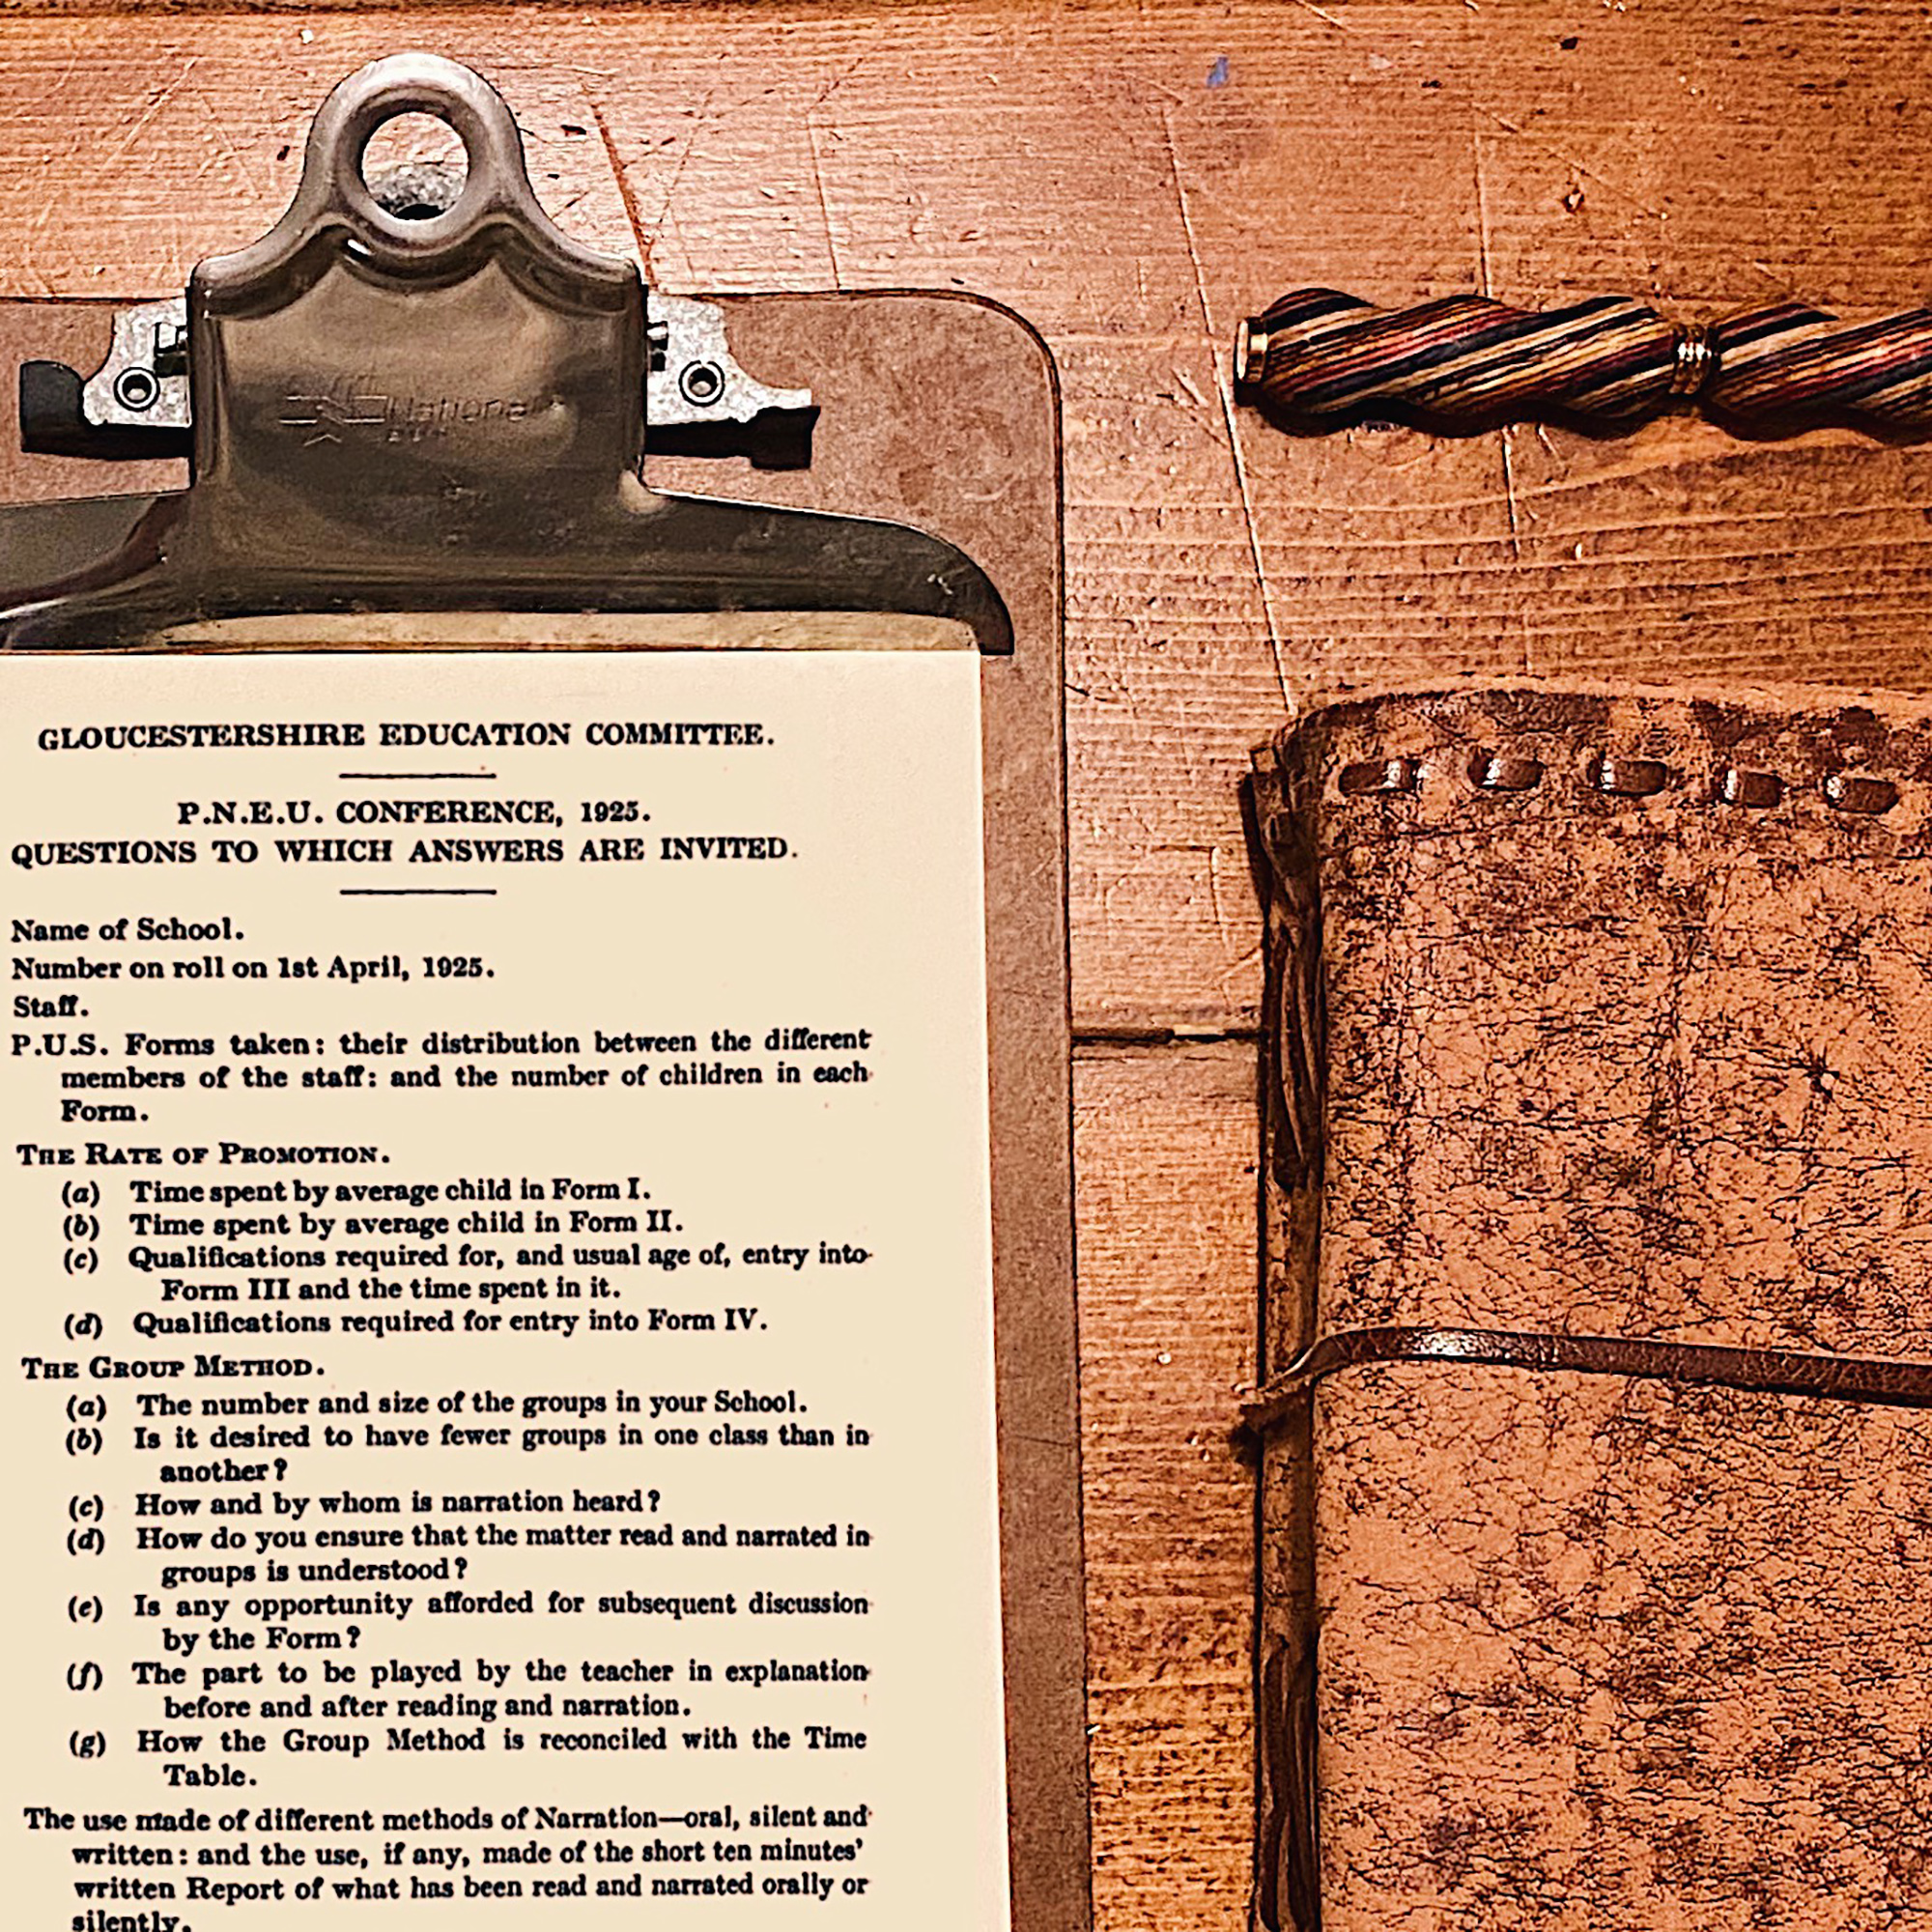 National
GLOUCESTERSHIRE EDUCATION COMMITTEE.
P.N.E.U. CONFERENCE, 1925.
QUESTIONS TO WHICH ANSWERS ARE INVITED.
Name of School.
Number on roll on 1st April, 1925.
Staff.
P.U.S. Forms taken: their distribution between the different
members of the staff: and the number of children in each
Form.
THE RATE OF PROMOTION.
(a) Time spent by average child in Form I.
(b) Time spent by average child in Form II.
(c) Qualifications required for, and usual age of, entry into
Form III and the time spent in it.
(d) Qualifications required for entry into Form IV.
THE GROUP METHOD.
(a) The number and size of the groups in your School.
(b) Is it desired to have fewer groups in one class than in
another?
(c) How and by whom is narration heard?
(d) How do you ensure that the matter read and narrated in
groups is understood?
(e) Is any opportunity afforded for subsequent discussion
by the Form?
(f) The part to be played by the teacher in explanation
before and after reading and narration.
(g) How the Group Method is reconciled with the Time
Table.
The use made of different methods of Narration—oral, silent and
written: and the use, if any, made of the short ten minutes'
written Report of what has been read and narrated orally or
silently.